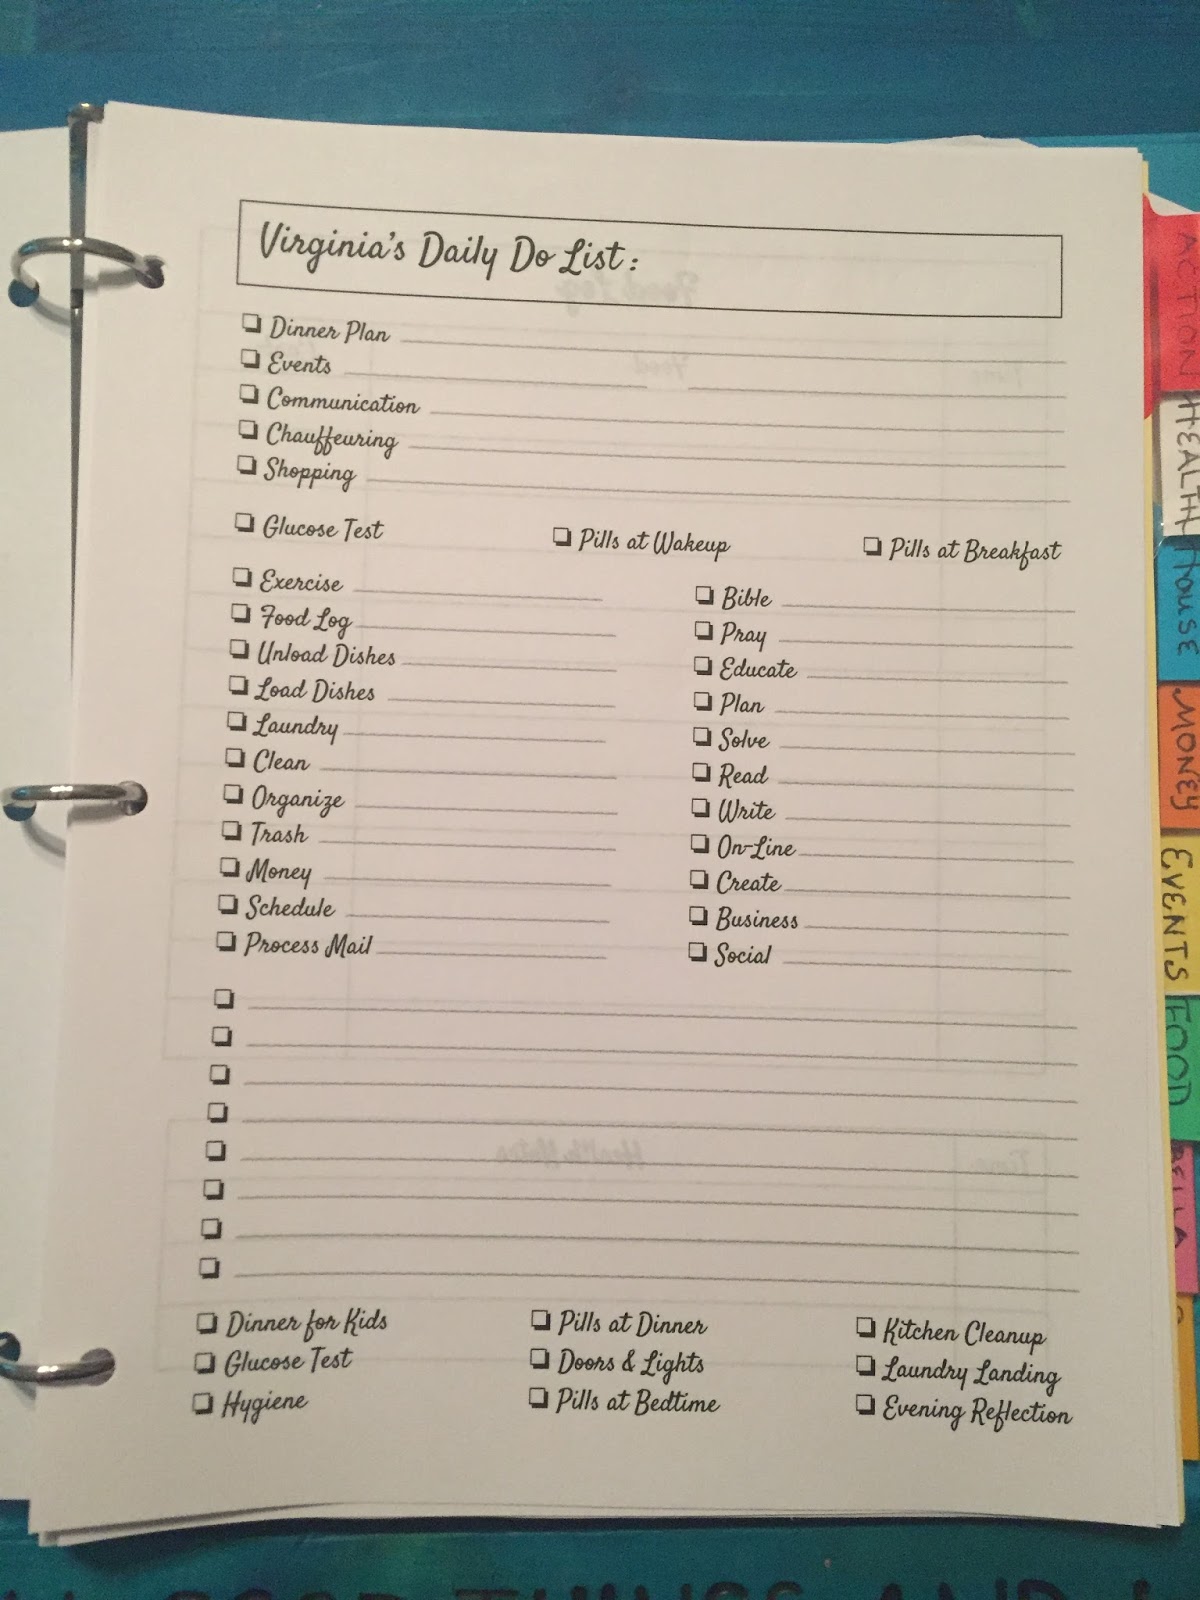 Virginia's Daily Do List:
❏ Dinner Plan
❏ Events
❏ Communication
❏ Chauffeuring
❏ Shopping
❏ Glucose Test ❏ Pills at Wakeup ❏ Pills at Breakfast
❏ Exercise
❏ Food Log
❏ Unload Dishes
❏ Load Dishes
❏ Laundry
❏ Clean
❏ Organize
❏ Trash
❏ Money
❏ Schedule
❏ Process Mail
❏ Bible
❏ Pray
❏ Educate
❏ Plan
❏ Solve
❏ Read
❏ Write
❏ On-Line
❏ Create
❏ Business
❏ Social
❏
❏
❏
❏
❏
❏
❏
❏
❏ Dinner for Kids ❏ Pills at Dinner ❏ Kitchen Cleanup
❏ Glucose Test ❏ Doors & Lights ❏ Laundry Landing
❏ Hygiene ❏ Pills at Bedtime ❏ Evening Reflection
ACTION
HEALTH
House
MONEY
EVENTS
FOOD
BELLA
Food Log
Food
Time
Health Notes
Time
GOOD THINGS AND